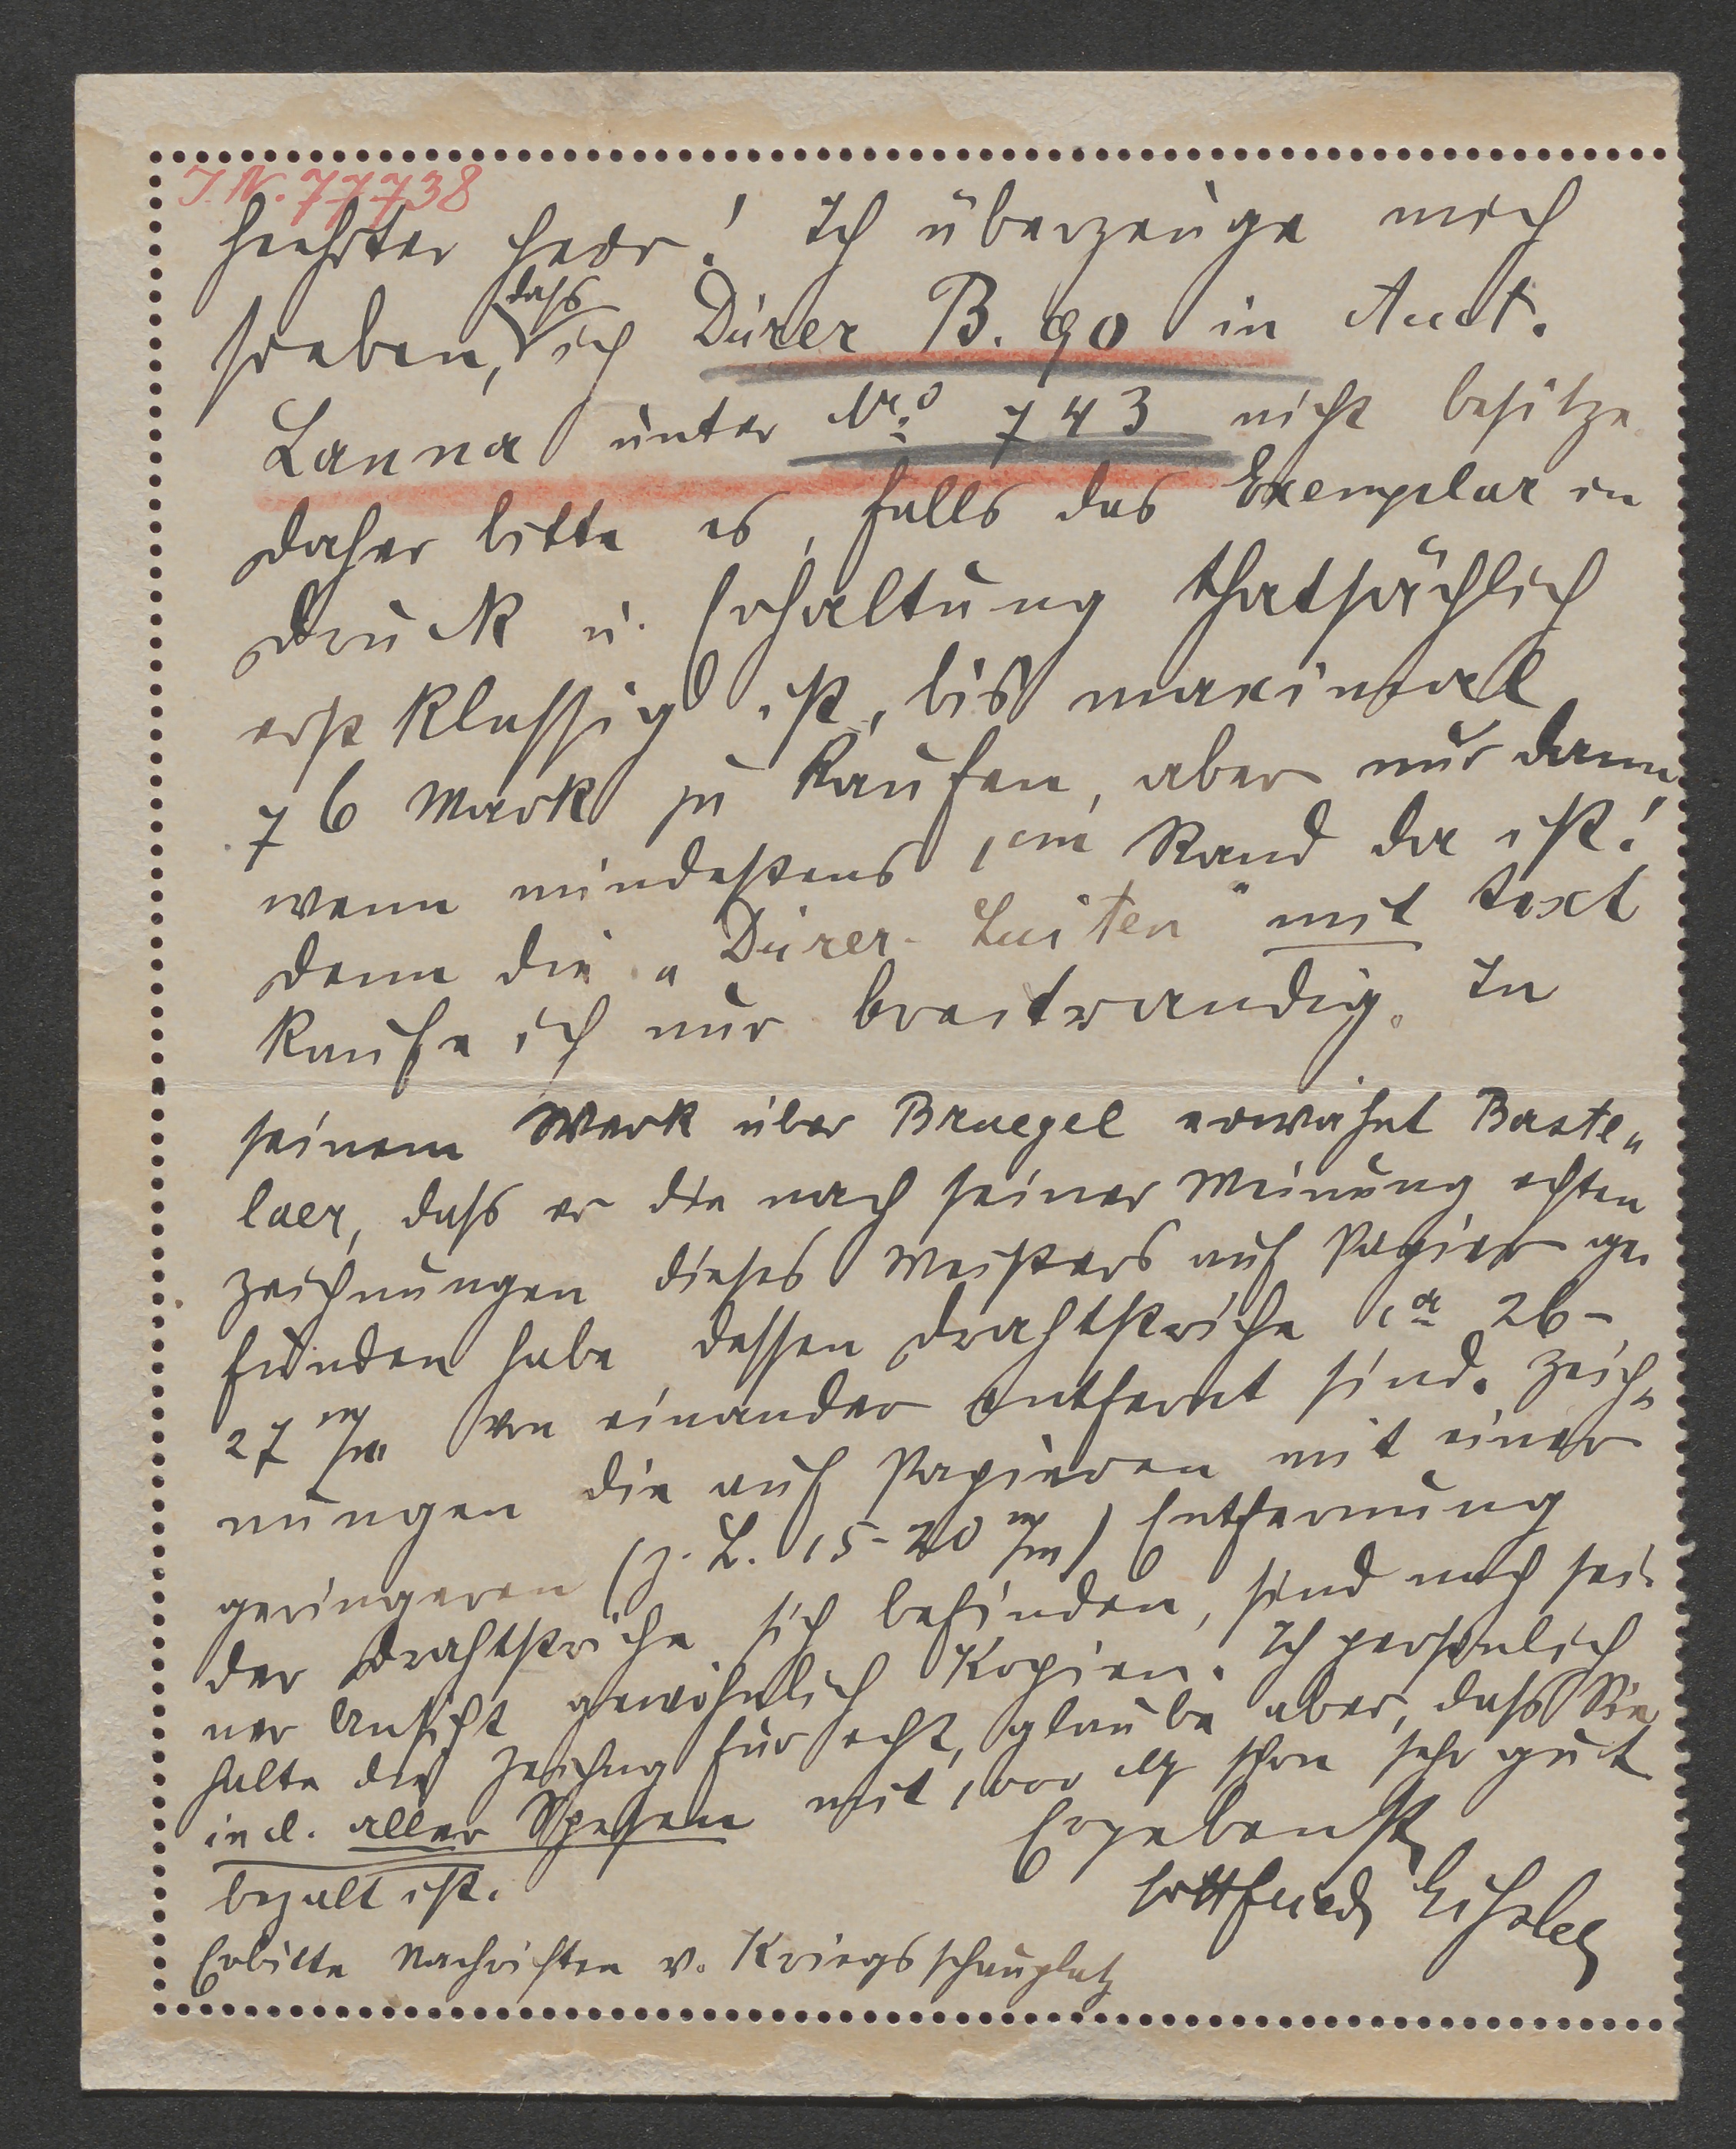 I.N. 77738
Geehrter Herr! Ich überzeuge mich
soeben, dass ich Dürer B. 90 in Auct.
Lanna unter Nro 743 nicht besitze
daher bitte es, falls das Exemplar in
Druck u. Erhaltung thatsächlich
erstklassig ist, bis maximal
76 Mark zu kaufen, aber nur dann,
wenn mindestens 1 cm Rand da ist!
denn die „Dürer-Suiten" mit Text
kaufe ich nur breitrandig. In
seinem Werk über Bruegel erwähnt Baste„
laer, dass er die nach seiner Meinung echten
Zeichnungen dieses Meisters auf Papier ge-
funden habe dessen Drahtstriche ca 26-
27 m/m von einander entfernt sind. Zeich„
nungen die auf Papieren mit einer
geringeren (z. B. 15-20 m/m) Entfernung
der Drahtstriche sich befinden, sind nach sei-
ner Ansicht gewöhnlich Kopien. Ich persönlich
halte die Zeichng für echt, glaube aber, dass Sie
incl. aller Spesen mit 1000 M schon sehr gut
bezalt ist.
Ergebenst
Gottfried Eissler
Erbitte Nachrichten v. Kriegsschauplatz